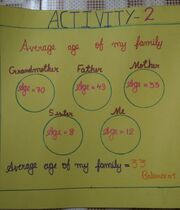 ACTIVITY-2
Average age of my family
Grandmother Father Mother
Age = 70 Age = 43 Age = 33
Sister Me
Age = 8 Age = 12
Average age of my family = 33